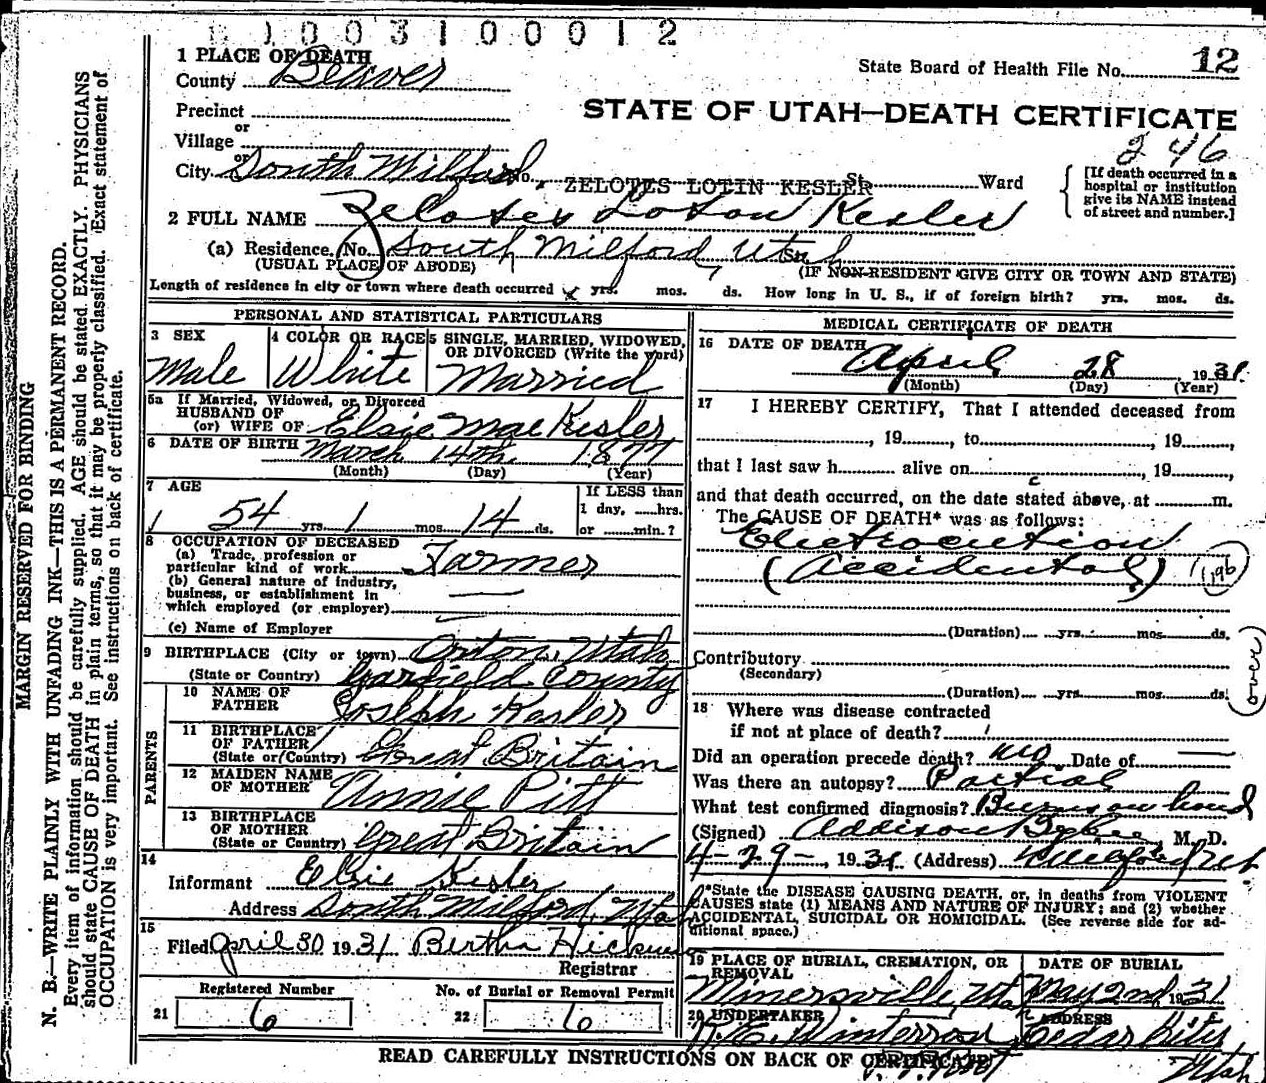 0 0 3 1 0 0 0 1 2
1 PLACE OF DEATH
County Beaver
State Board of Health File No. 12
Precinct
or
Village
or
City South Milford No. St. Ward
STATE OF UTAH—DEATH CERTIFICATE
246
[If death occurred in a
hospital or institution
give its NAME instead
of street and number.]
ZELOTES LOTIN KESLER
2 FULL NAME Zelotes Loton Kesler
(a) Residence. No. South Milford, Utah St.
(USUAL PLACE OF ABODE) (IF NON-RESIDENT GIVE CITY OR TOWN AND STATE)
Length of residence in city or town where death occurred yrs. mos. ds. How long in U. S., if of foreign birth? yrs. mos. ds.
PERSONAL AND STATISTICAL PARTICULARS
3 SEX
Male
4 COLOR OR RACE
White
5 SINGLE, MARRIED, WIDOWED,
OR DIVORCED (Write the word)
Married
5a If Married, Widowed, or Divorced
HUSBAND OF
(or) WIFE OF Elsie Mae Kesler
6 DATE OF BIRTH March 14th 1877
(Month) (Day) (Year)
7 AGE
54 yrs. 1 mos. 14 ds.
If LESS than
1 day, hrs.
or min.?
8 OCCUPATION OF DECEASED
(a) Trade, profession or
particular kind of work Farmer
(b) General nature of industry,
business, or establishment in
which employed (or employer)
(c) Name of Employer
9 BIRTHPLACE (City or town) Orton, Utah
(State or Country) Garfield County
PARENTS
10 NAME OF
FATHER Joseph Kesler
11 BIRTHPLACE
OF FATHER
(State or Country) Great Britain
12 MAIDEN NAME
OF MOTHER Annie Pitt
13 BIRTHPLACE
OF MOTHER
(State or Country) Great Britain
14
Informant Elsie Kesler
Address South Milford, Utah
15
Filed April 30 1931 Bertha
Registrar
Registered Number
21 6
No. of Burial or Removal Permit
22 6
MEDICAL CERTIFICATE OF DEATH
16 DATE OF DEATH
April 28, 1931.
(Month) (Day) (Year)
17 I HEREBY CERTIFY, That I attended deceased from
, 19 , to , 19 ,
that I last saw h alive on , 19 ,
and that death occurred, on the date stated above, at m.
The CAUSE OF DEATH* was as follows:
Electrocution
(Accidental)
(Duration) yrs. mos. ds.
Contributory
(Secondary)
(Duration) yrs. mos. ds.
(over)
18 Where was disease contracted
if not at place of death?
Did an operation precede death? no Date of
Was there an autopsy? Partial
What test confirmed diagnosis? Burns on hand
(Signed) Addison M. D.
4-29-, 1931 (Address)
*State the DISEASE CAUSING DEATH, or, in deaths from VIOLENT
CAUSES state (1) MEANS AND NATURE OF INJURY; and (2) whether
ACCIDENTAL, SUICIDAL OR HOMICIDAL. (See reverse side for ad-
ditional space.)
19 PLACE OF BURIAL, CREMATION, OR
REMOVAL
Minersville, Utah
DATE OF BURIAL
May 2nd, 1931
20 UNDERTAKER
ADDRESS
Cedar City
Utah
READ CAREFULLY INSTRUCTIONS ON BACK OF CERTIFICATE
MARGIN RESERVED FOR BINDING
N. B.—WRITE PLAINLY WITH UNFADING INK—THIS IS A PERMANENT RECORD.
Every item of information should be carefully supplied. AGE should be stated EXACTLY. PHYSICIANS
should state CAUSE OF DEATH in plain terms, so that it may be properly classified. Exact statement of
OCCUPATION is very important. See instructions on back of certificate.